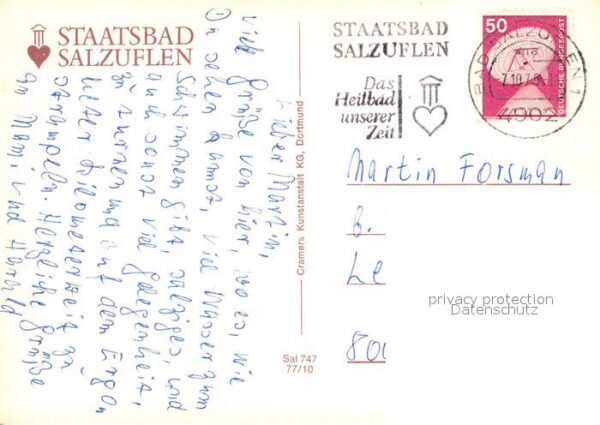 STAATSBAD
SALZUFLEN
Lieber Martin,
viele Grüße von hier, wo es, wie
Du sehen kannst, viel Wasser zum
Schwimmen gibt, salziges, und
auch sonst viel Gelegenheit,
zu turnen und auf dem Ergo
meter kilometerweit zu
strampeln. Herzliche Grüße
an Mami und Harald
Cramers Kunstanstalt KG, Dortmund
Sal 747
77/10
STAATSBAD
SALZUFLEN
Das
Heilbad
unserer
Zeit
50
DEUTSCHE BUNDESPOST
BAD SALZUFLEN 1
4902
Martin Forsman
b.
Le
800
privacy protection
Datenschutz